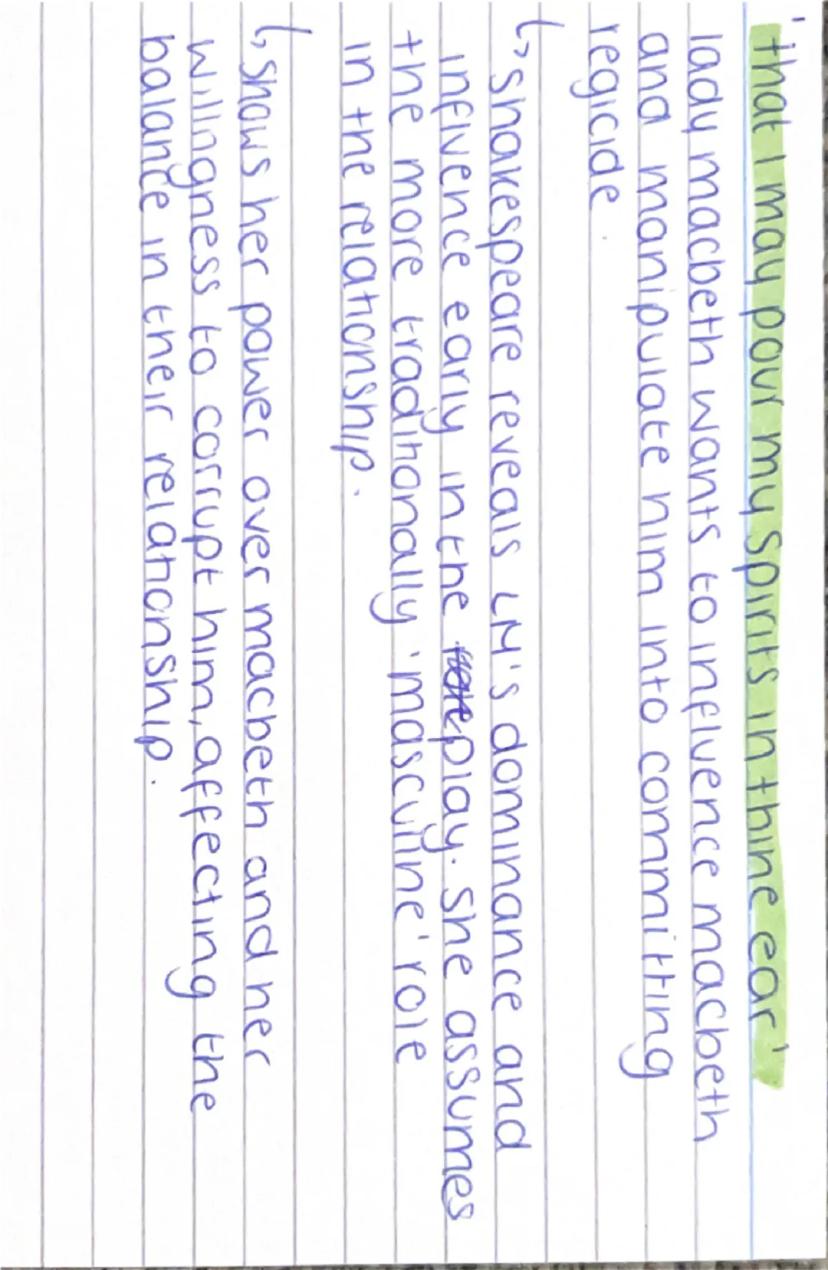 'that I may pour my spirits in thine ear'
lady macbeth wants to influence macbeth
and manipulate him into committing
regicide.
↳ shakespeare reveals LM's dominance and
influence early in the play. she assumes
the more traditionally 'masculine' role
in the relationship.
↳ shows her power over macbeth and her
willingness to corrupt him, affecting the
balance in their relationship.